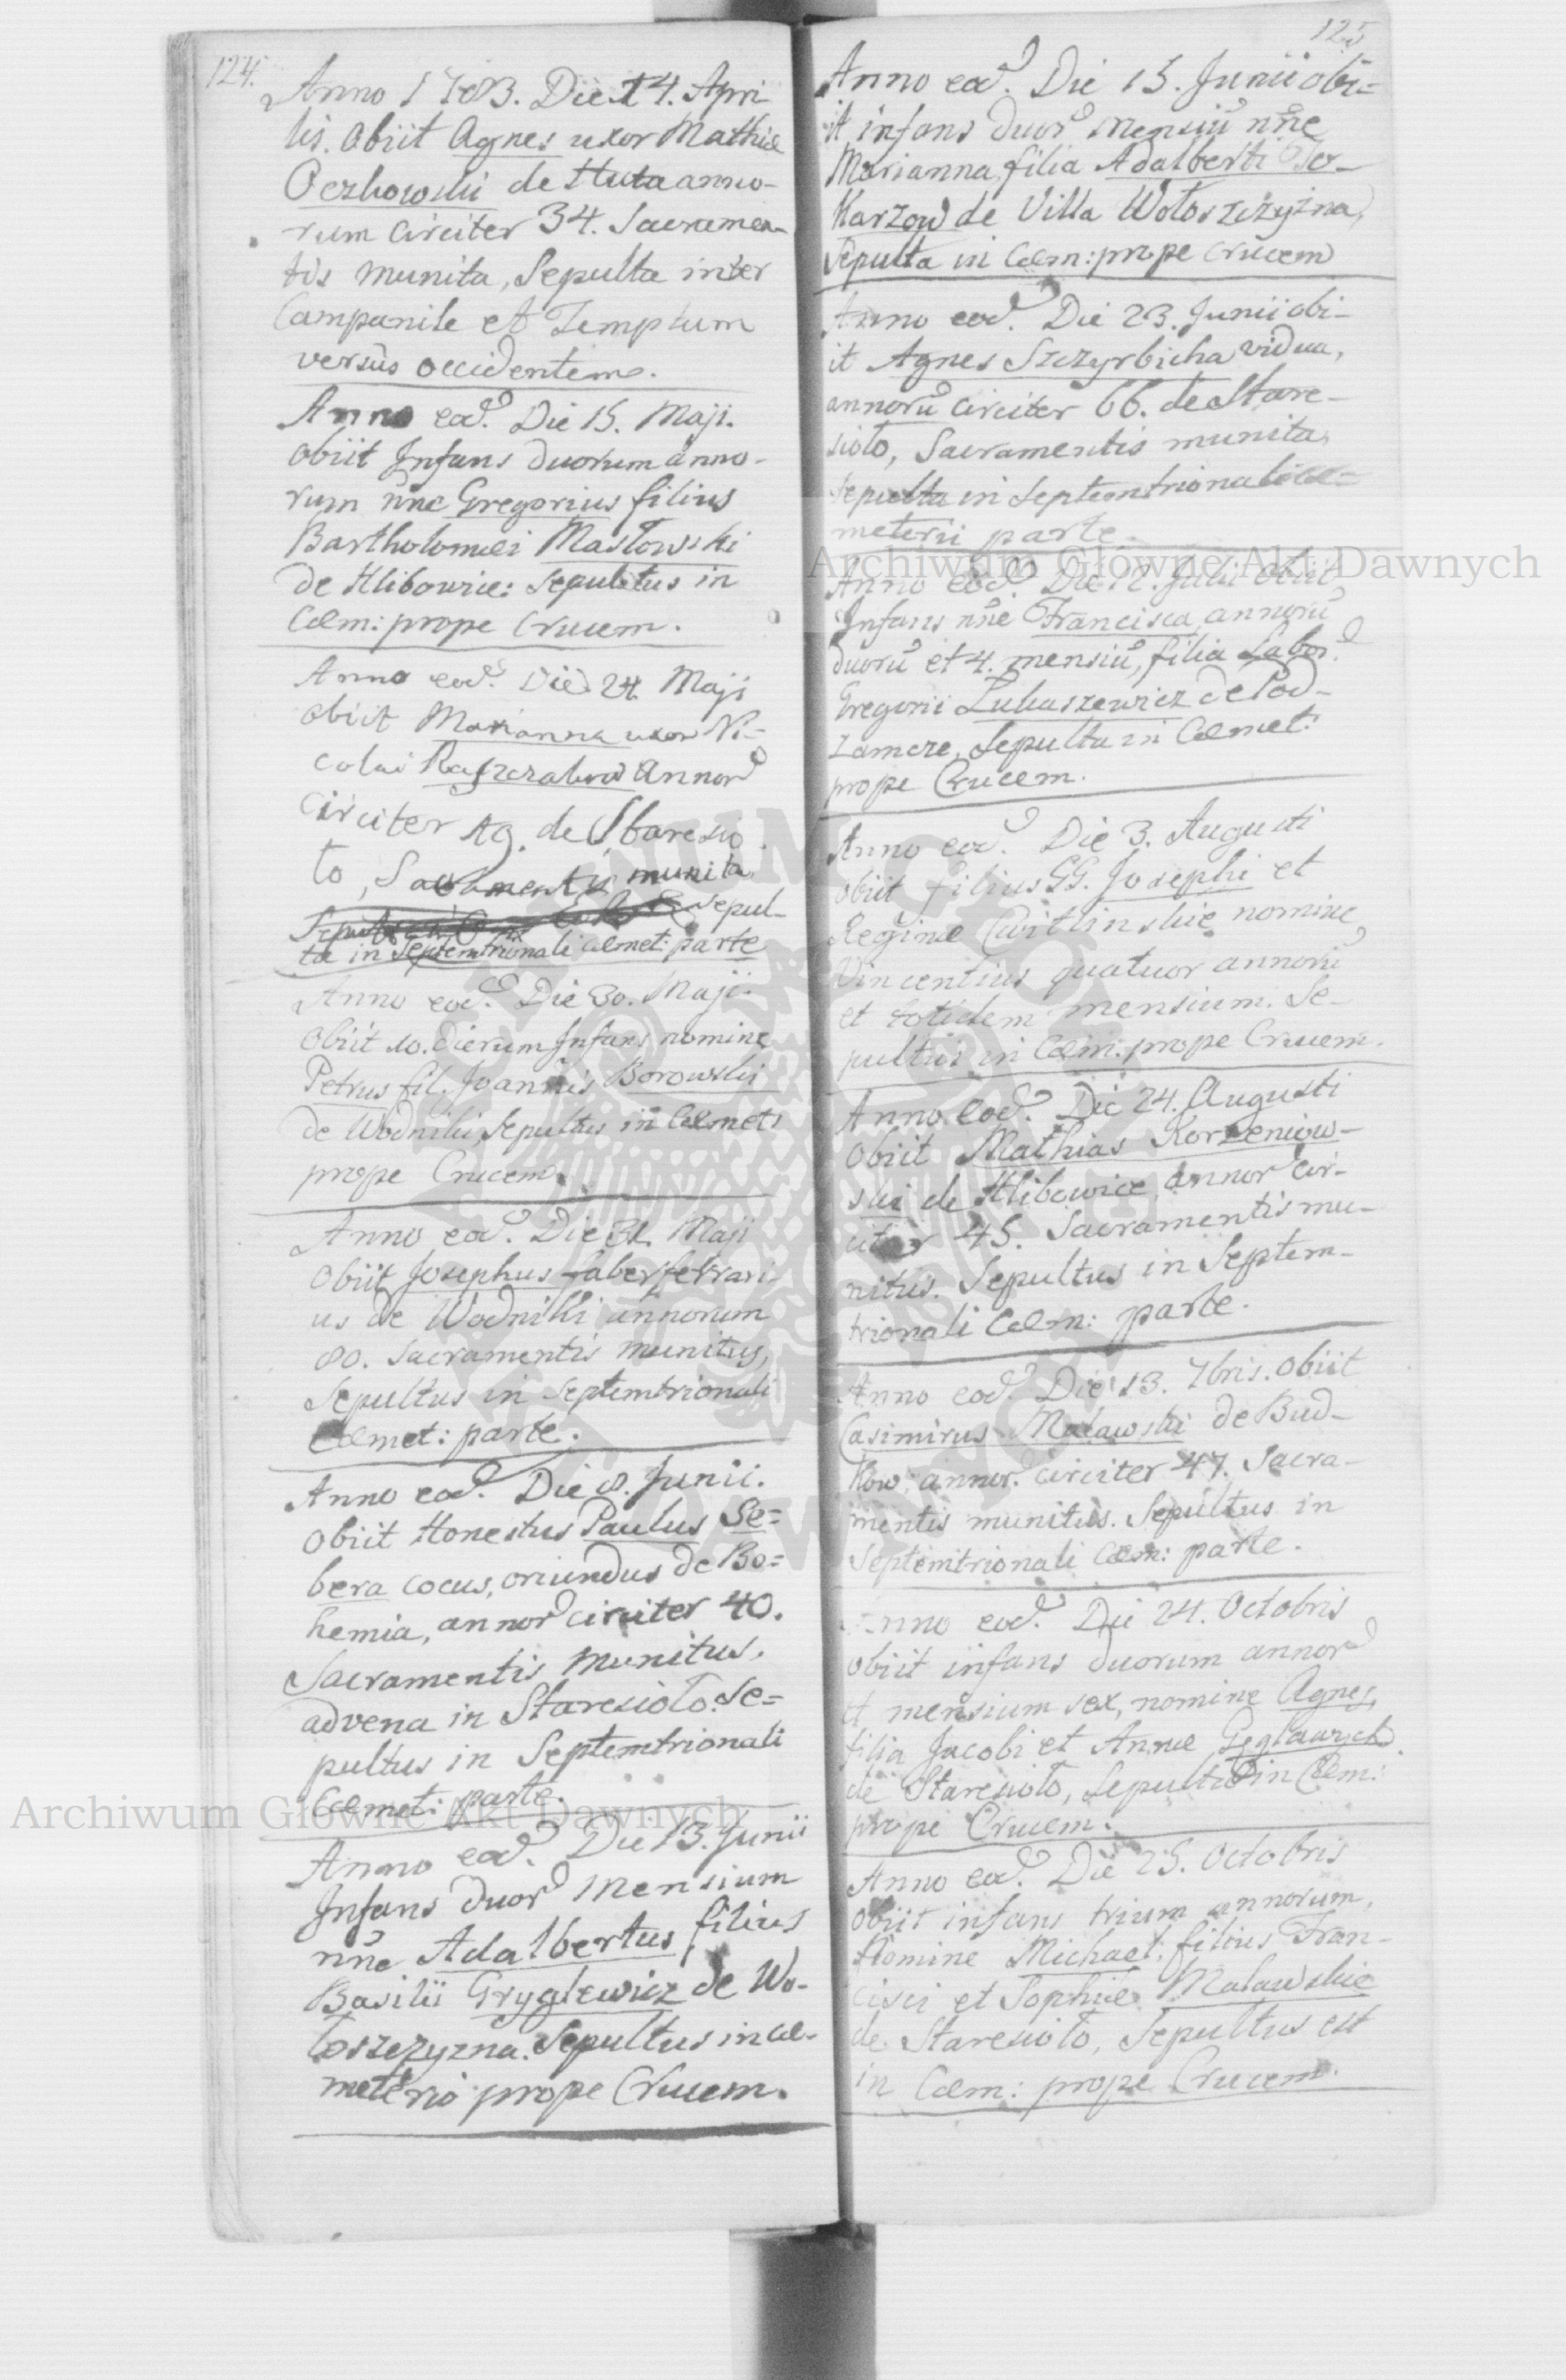 124.
Anno 1783. Die 14. Apri-
lis. Obiit Agnes uxor Mathiæ
de Huta anno-
rum circiter 34. Sacramen-
tis munita, Sepulta inter
Campanile et Templum
versus occidentem.
Anno eod. Die 15. Maji.
obiit Infans duorum anno-
rum nne Gregorius filius
Bartholomæi Masłowski
de Hlibowice: Sepultus in
Cœm: prope Crucem.
Anno eod. Die 24. Maji
obiit Marianna uxor Ni-
colai Annor
circiter de Staresio
ło, Sacramentis munita
Sepul-
ta in Septemtrionali Cœmet: parte
Anno eod. Die 30. Maji.
Obiit 10. dierum Infans nomine
Petrus fil. Joannis Borowski
de Wodniki Sepultus in Cœmet:
prope Crucem.
Anno eod. Die 31. Maji
Obiit Josephus faber ferrari-
us de Wodniki annorum
80. Sacramentis munitus,
Sepultus in Septemtrionali
Cœmet: parte.
Anno eod. Die 8. Junii.
Obiit Honestus Paulus Se=
bera cocus, oriundus de Bo=
hemia, annor circiter 40.
Sacramentis munitus.
advena in Staresioło. Se=
pultus in Septemtrionali
Cœmet: parte.
Anno eod. Die 13. Junii
Infans duor Mensium
nne Adalbertus filius
Basilii Gryglewicz de Wo-
łoszczyzna. Sepultus in Cœ-
meterio prope Crucem.
125
Anno eod. Die 15. Junii obi=
it infans duor mensiu nne
Marianna filia Adalberti
de Villa Wołoszczyzna,
Sepulta in Cœm: prope Crucem
Anno eod. Die 23. Junii obi-
it Agnes Szczyrbicha vidua,
annoru circiter 66. de Stare-
sioło, Sacramentis munita,
sepulta in Septemtrionali Cœ=
meterii parte.
Anno eod. Die Julii obiit
Infans nne Francisca annoru
duoru et 4. mensiu, filia Labor.
Gregorii Łukaszewicz de Pod-
zamcze, Sepulta in Cœmet:
prope Crucem.
Anno eod. Die 3. Augusti
obiit filius GG. Josephi et
Reginæ nomine
Vincentius quatuor annoru
et totidem mensium. Se-
pultus in Cœm: prope Crucem.
Anno eod. Die 24. Augusti
Obiit Mathias Korzeniow-
ski de Hlibowice, annor cir-
citer 45. Sacramentis mu-
nitus. Sepultus in Septem-
trionali Cœm: parte.
Anno eod. Die 13. 7bris. Obiit
Casimirus Malawski de Bud-
kow: annor. circiter 47. Sacra-
mentis munitus. Sepultus in
Septemtrionali Cœm: parte.
Anno eod. Die 24. Octobris
obiit infans duorum annor
et mensium sex, nomine Agnes,
filia Jacobi et Annæ
de Staresioło, Sepulta in Cœm:
prope Crucem.
Anno eod. Die 25. Octobris
obiit infans trium annorum,
Nomine Michael: filius Fran-
cisci et Sophiæ Malawskie
de Staresioło, Sepultus est
in Cœm: prope Crucem.
Archiwum Główne Akt Dawnych
Archiwum Główne Akt Dawnych